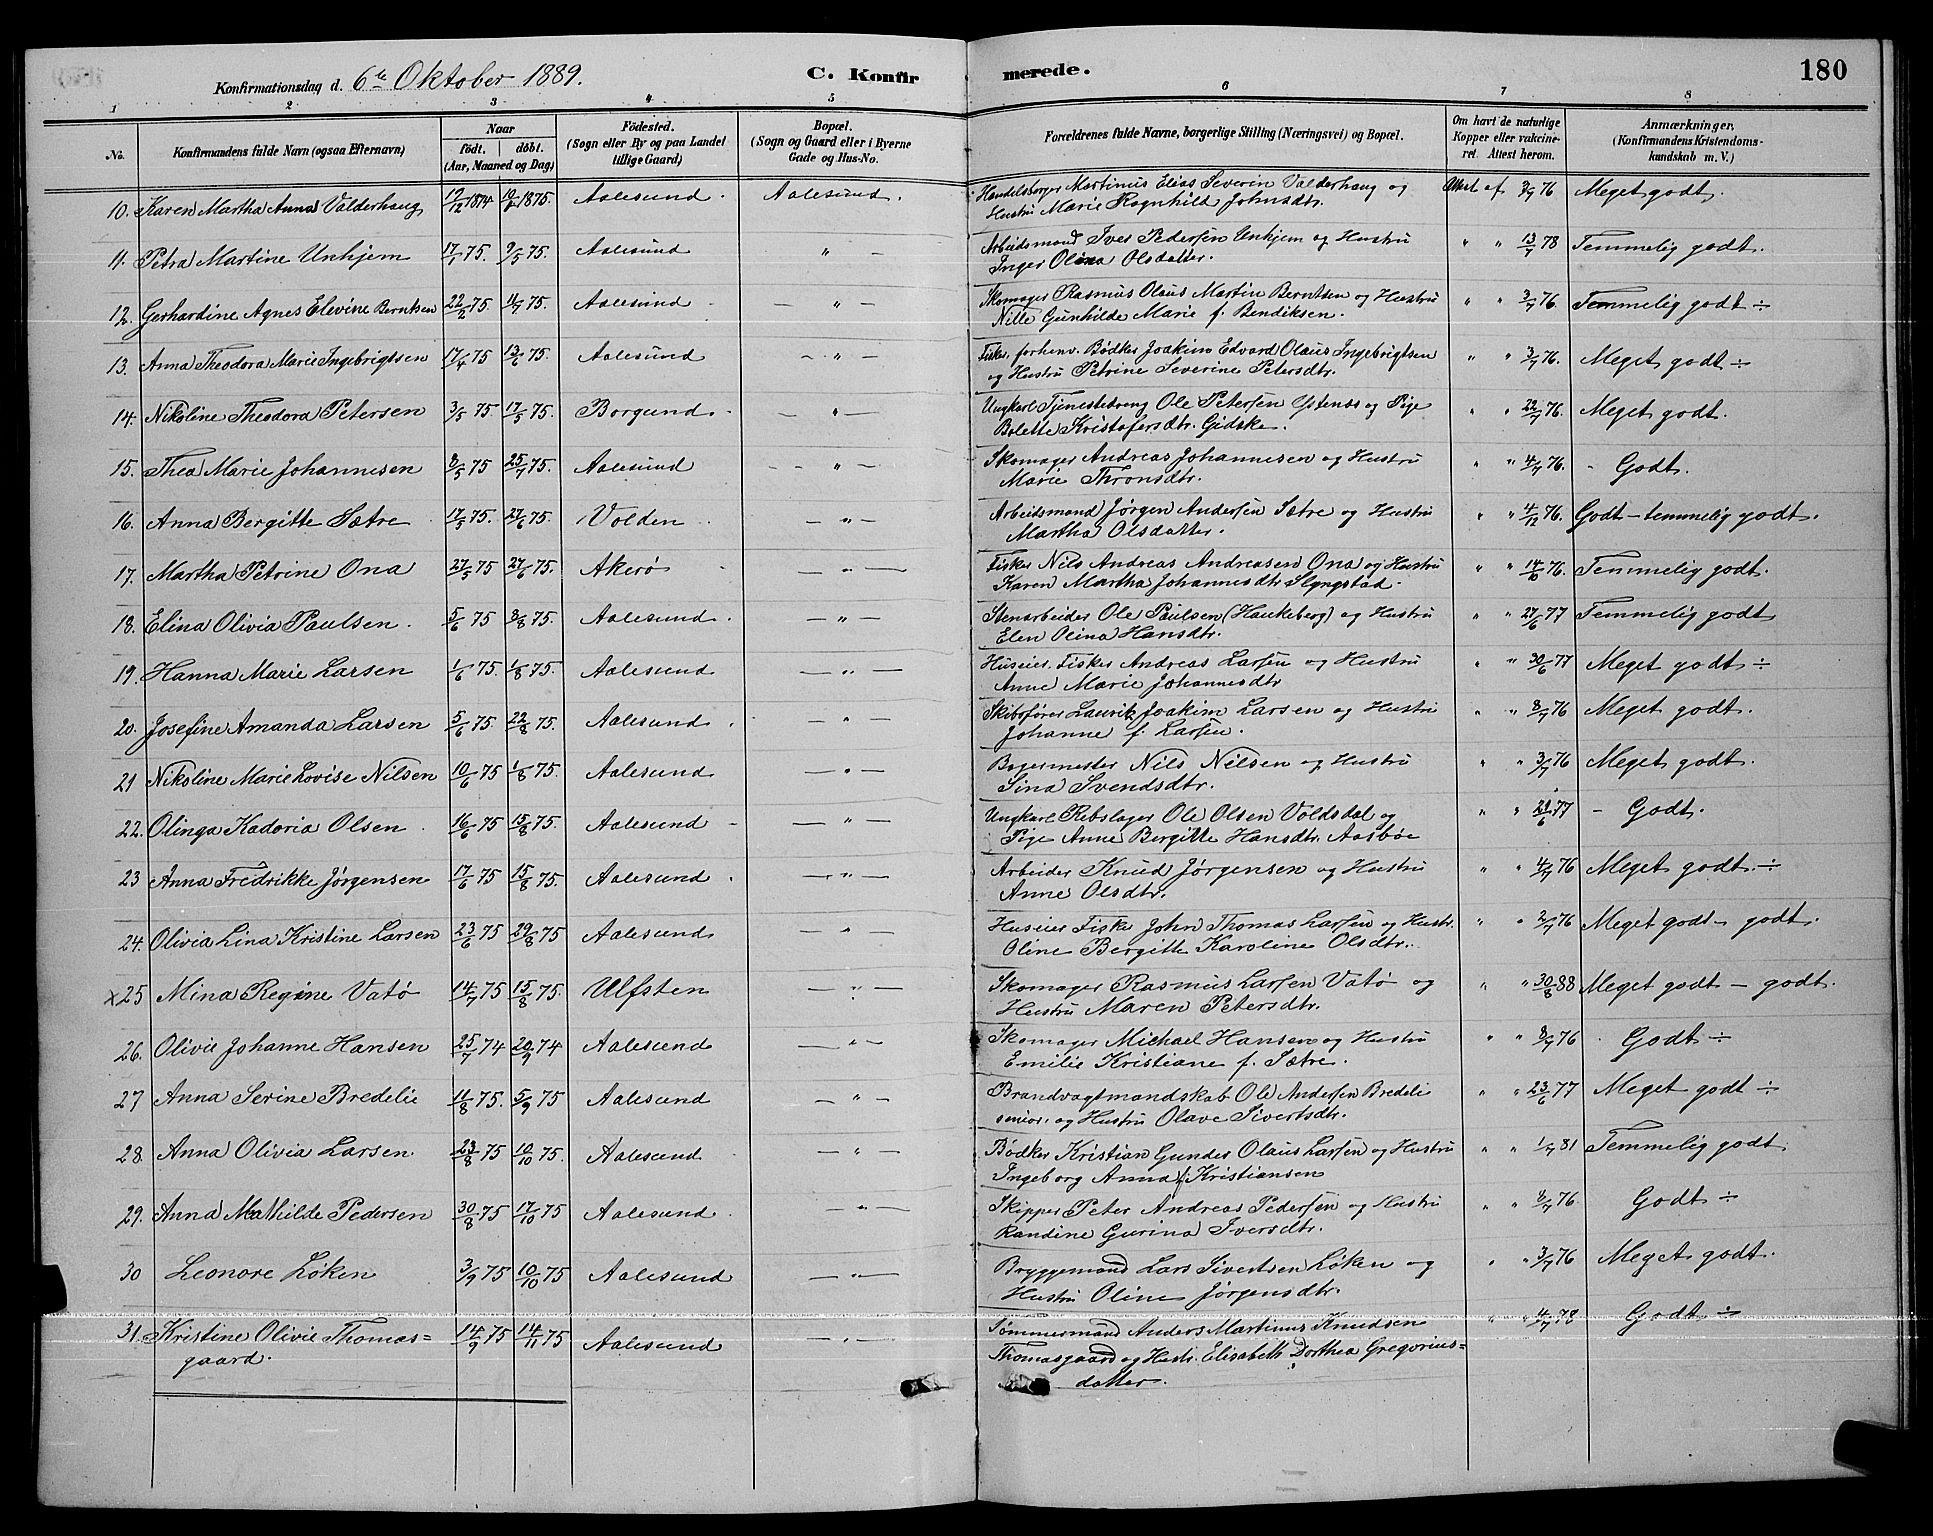 180
Konfirmationsdag d. 6te Oktober 1889.
C. Konfirmerede.
1 2 3 4 5 6 7 8
No. Konfirmandens fulde Navn (ogsaa Efternavn) Naar födt. döbt. (Aar, Maaned og Dag) Födested. (Sogn eller By og paa Landet tillige Gaard) Bopæl. (Sogn og Gaard eller i Byerne Gade og Hus-No. Forældrenes fulde Navne, borgerlige Stilling (Næringsvei) og Bopæl. Om havt de naturlige Kopper eller vakcineret. Attest herom. Anmærkninger. (Konfirmandens Kristendomskundskab m. V.)
10. Karen Martha Anna Valderhaug 17/12 1874 10/2 1875 Aalesund. Aalesund. Handelsborger Martinus Elias Severin Valderhaug og Attest af 3/7 76 Meget godt.
Hustru Marie Ragnhild Johnsdtr.
11. Petra Martine Unhjem 17/1 75. 9/5 75. Aalesund " Arbeidsmand Iver Pedersen Unhjem og Hustru " " 13/7 78 Temmelig godt.
Inger Olina Olsdatter.
12. Gerhardine Agnes Elevine Berntsen 22/2 75 11/7 75. Aalesund " Skomager Rasmus Olaus Martin Berntsen og Hustru " " 3/7 76. Temmelig godt ÷
Nille Gunhilde Marie f. Bendiksen.
13. Anna Theodora Marie Ingebrigtsen 17/4 75 13/6 75. Aalesund " Fisker, forhenv. Bödker Joakim Edvard Olaus Ingebrigtsen " " 3/7 76. Meget godt ÷
og Hustru Petrine Severine Petersdtr.
14. Nikoline Theodora Petersen 3/5 75. 17/5 75. Borgund. " Ungkarl Tjenestedreng Ole Petersen Ystenes og Pige " " 22/7 76. Meget godt.
Bolette Kristofersdtr. Gidske.
15. Thea Marie Johannesen 8/5 75 25/7 75. Aalesund " Skomager Andreas Johannesen og Hustru " " 4/7 76. - Godt.
Marie Thronsdtr.
16. Anna Bergitte Sætre 17/5 75. 27/6 75. Volden " Arbeidsmand Jørgen Andersen Sætre og Hustru " " 4/12 76. Godt - temmelig godt.
Martha Olsdatter.
17. Martha Petrine Ona 27/5 75 27/6 75. Akerö " Fisker Nils Andreas Andreasen Ona og Hustru " " 14/10 76. Temmelig godt.
Karen Martha Johannesdtr Slyngstad.
18. Elina Olivia Paulsen. 5/6 75 3/8 75. Aalesund. " Stenarbeider Ole Paulsen (Haukeberg) og Hustru " " 27/6 77 Temmelig godt
Elen Olina Hansdtr.
19. Hanna Marie Larsen 1/6 75. 1/8 75. Aalesund " Huseier Fisker Andreas Larsen og Hustru " " 30/6 77 Meget godt ÷
Anne Marie Johannesdtr
20. Josefine Amanda Larsen 5/6 75. 22/8 75. Aalesund. " Skibsfører Lauritz Joakim Larsen og Hustru " " 8/7 76 Meget godt.
Johanne f. Larsen.
21 Nikoline Marie Lovise Nilsen 10/6 75 1/8 75. Aalesund " Bagermester Nils Nilsen og Hustru " " 3/7 76 Meget godt.
Sina Svendsdtr.
22. Olinga Kadoria Olsen 16/6 75 15/8 75. Aalesund " Ungkarl Rebslager Ole Olsen Voldsdal og " " 29/6 77 - Godt.
Pige Anne Bergitte Hansdtr. Aasböe
23 Anna Fredrikke Jørgensen 17/6 75 15/8 75. Aalesund. " Arbeider Knud Jørgensen og Hustru " " 4/7 76 Meget godt. ÷
Anne Olsdtr.
24. Olivia Lina Kristine Larsen 23/6 75 29/8 75 Aalesund " Huseier Fisker John Thomas Larsen og Hustr. " " 2/7 76 Meget godt - godt.
Oline Bergitte Karoline Olsdtr.
x 25 Mina Regine Vatø 14/7 75 15/8 75. Ulfsten " Skomager Rasmus Larsen Vatø og " " 30/8 88 Meget godt - godt.
Hustru Maren Petersdtr.
26. Olivie Johanne Hansen 25/7 74 20/9 74 Aalesund " Skomager Michael Hansen og Hustru " " 8/7 76 Godt ÷
Emilie Kristiane f. Sætre.
27 Anna Serine Bredelie 11/8 75. 5/9 75 Aalesund " Brandvagtmandskab Ole Andersen Bredeli " " 23/6 77 Meget godt ÷
senior. og Hustru Olave Sivertsdtr.
28. Anna Olivia Larsen. 23/8 75 10/10 75. Aalesund " Bödker Kristian Gunder Olaus Larsen og Hustru " " 1/7 81 Temmelig godt
Ingeborg Anna f. Kristiansen
29. Anna Mathilde Pedersen 30/8 75 17/10 75 Aalesund. " Skipper Peter Andreas Pedersen og Hustru " " 8/7 76. Godt ÷
Randine Gurina Iversdtr.
30 Leonore Løken 3/9 75 10/10 75 Aalesund " Bryggemand Lars Sivertsen Løken og " " 3/7 76 Meget godt.
Hustru Oline Jørgensdtr.
31. Kristine Olivie Thomas= 14/9 75 14/11 75 Aalesund " Tømmermand Anders Martinus Knudsen " " 4/7 78 Godt ÷
gaard. Thomasgaard og Hustr. Elisabeth Dorthea Gregorius=
datter.